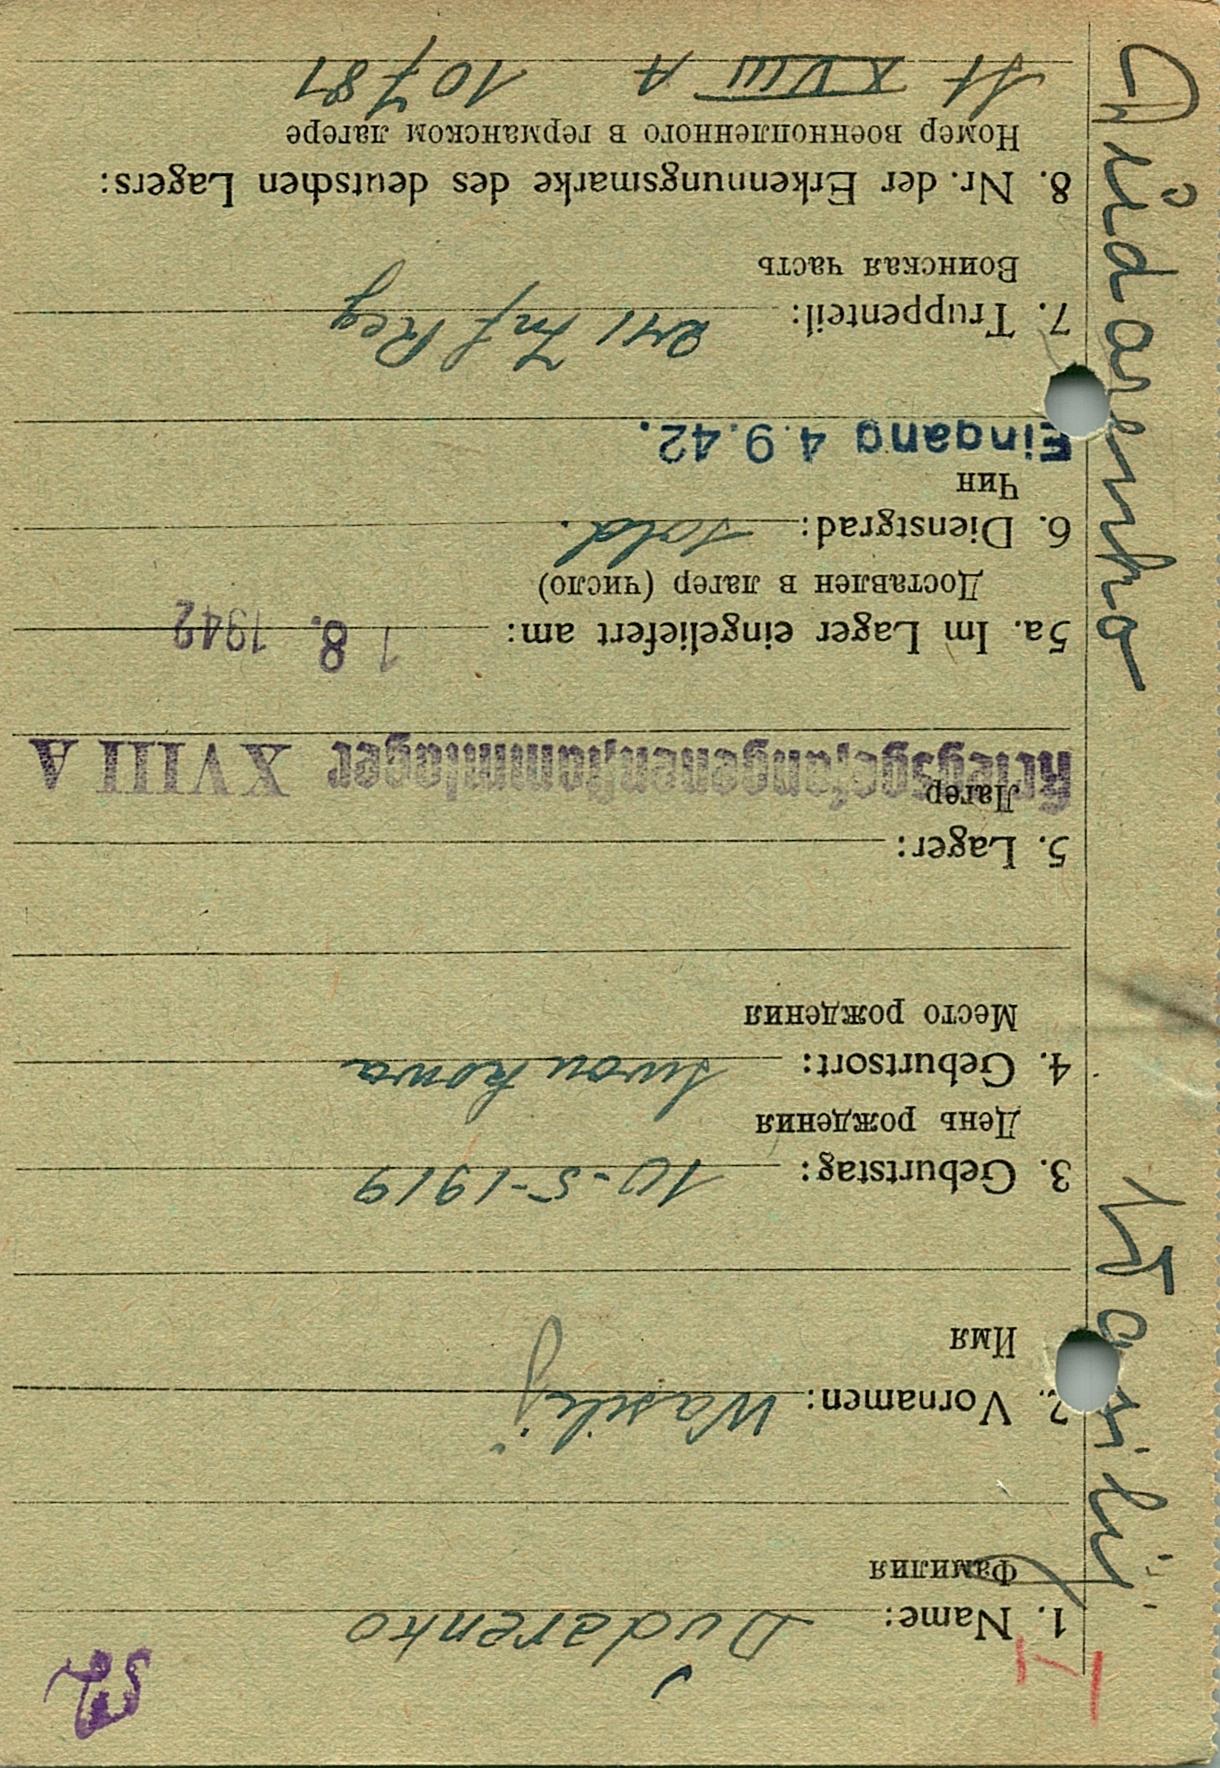 57
1. Name: Dudarenko
Фамилия
2. Vornamen: Wasilij
Имя
3. Geburtstag: 10-5-1919
День рождения
4. Geburtsort: Iwonkowa
Место рождения
5. Lager:
Лагер
Kriegsgefangenenstammlager XVIII A
5a. Im Lager eingeliefert am: 1 8. 1942
Доставлен в лагер (число)
6. Dienstgrad: Sold.
Чин
Eingang 4.9.42.
7. Truppenteil: 241 Inf Reg
Воинская часть
8. Nr. der Erkennungsmarke des deutschen Lagers:
Номер военнопленного в германском лагере
St XVIII A 10781
Dudarenko Wasilij